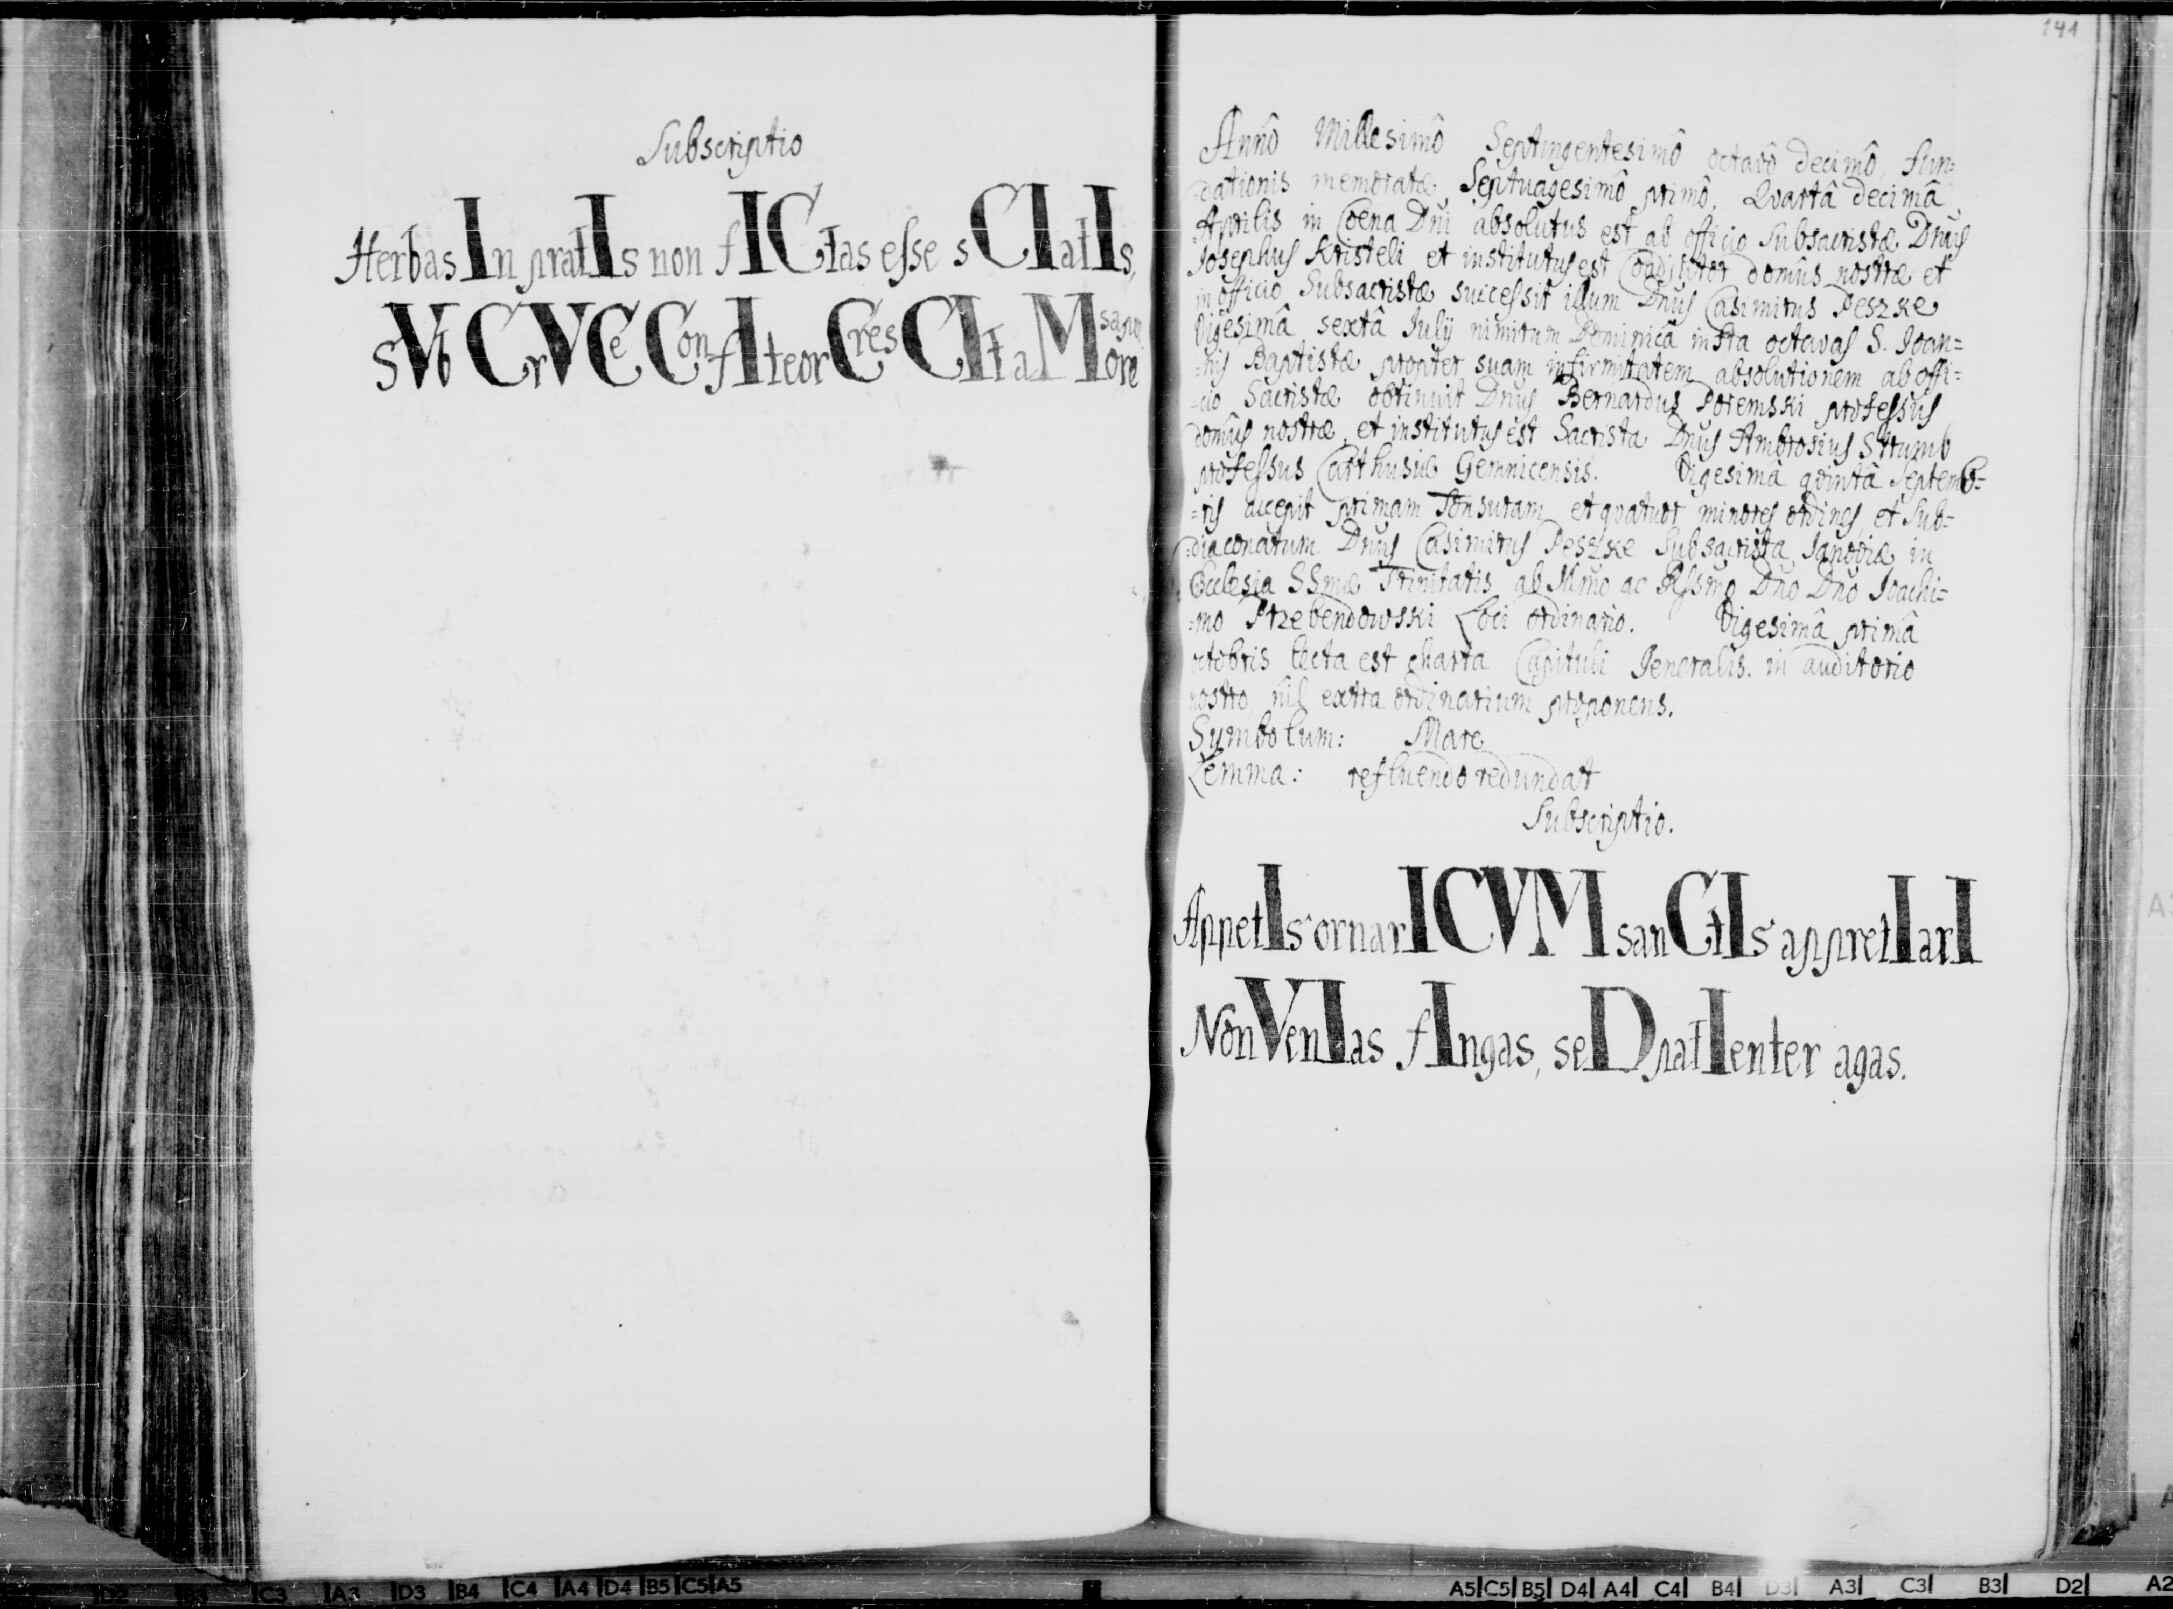 Subscriptio
Herbas In pratIs non fICtas esse sCIatIs,
sVb CrVCe ConfIteor CresCIt aMore sapor
141
Annô Millesimô Septingentesimô octavô decimô, fun=
=dationis memoratæ Septuagesimô primô. Quartâ decimâ
Aprilis in Coena Dñi absolutus est ab officio Subsacristæ Dnus
Josephus Kristeli et institutus est Coadjutor domûs nostræ et
in officio Subsacristæ successit illum Dnus Casimirus Peszke
Vigesimâ sextâ Julij nimirum Dominicâ infra octavas S. Joan=
=nis Baptistæ propter suam infirmitatem absolutionem ab offi=
=cio Sacristæ obtinuit Dnus Bernardus Poremski professus
domûs nostræ, et institutus est Sacrista Dnus Ambrosius Strumb
professus Carthusiæ Gemnicensis. Vigesimâ quintâ Septemb=
=ris accepit primam Tonsuram et quatuor minores ordines et Sub=
=diaconatum Dnus Casimirus Peszke Subsacrista Janoviæ in
Ecclesia SSmæ Trinitatis ab Illmo ac Rssmo Dño Dño Joachi=
=mo Przebendowski Loci ordinario. Vigesimâ primâ
octobris lecta est charta Capituli Generalis. in auditorio
nostro nil extra ordinarium proponens.
Symbolum: Mare
Lemma: refluendo redundat
Subscriptio.
AppetIs ornarI CVM sanCtIs appretIarI
Non VenIas fIngas, seD patIenter agas.
D2 B3 C3 A3 D3 B4 C4 A4 D4 B5 C5 A5
A5 C5 B5 D4 A4 C4 B4 D3 A3 C3 B3 D2 A2